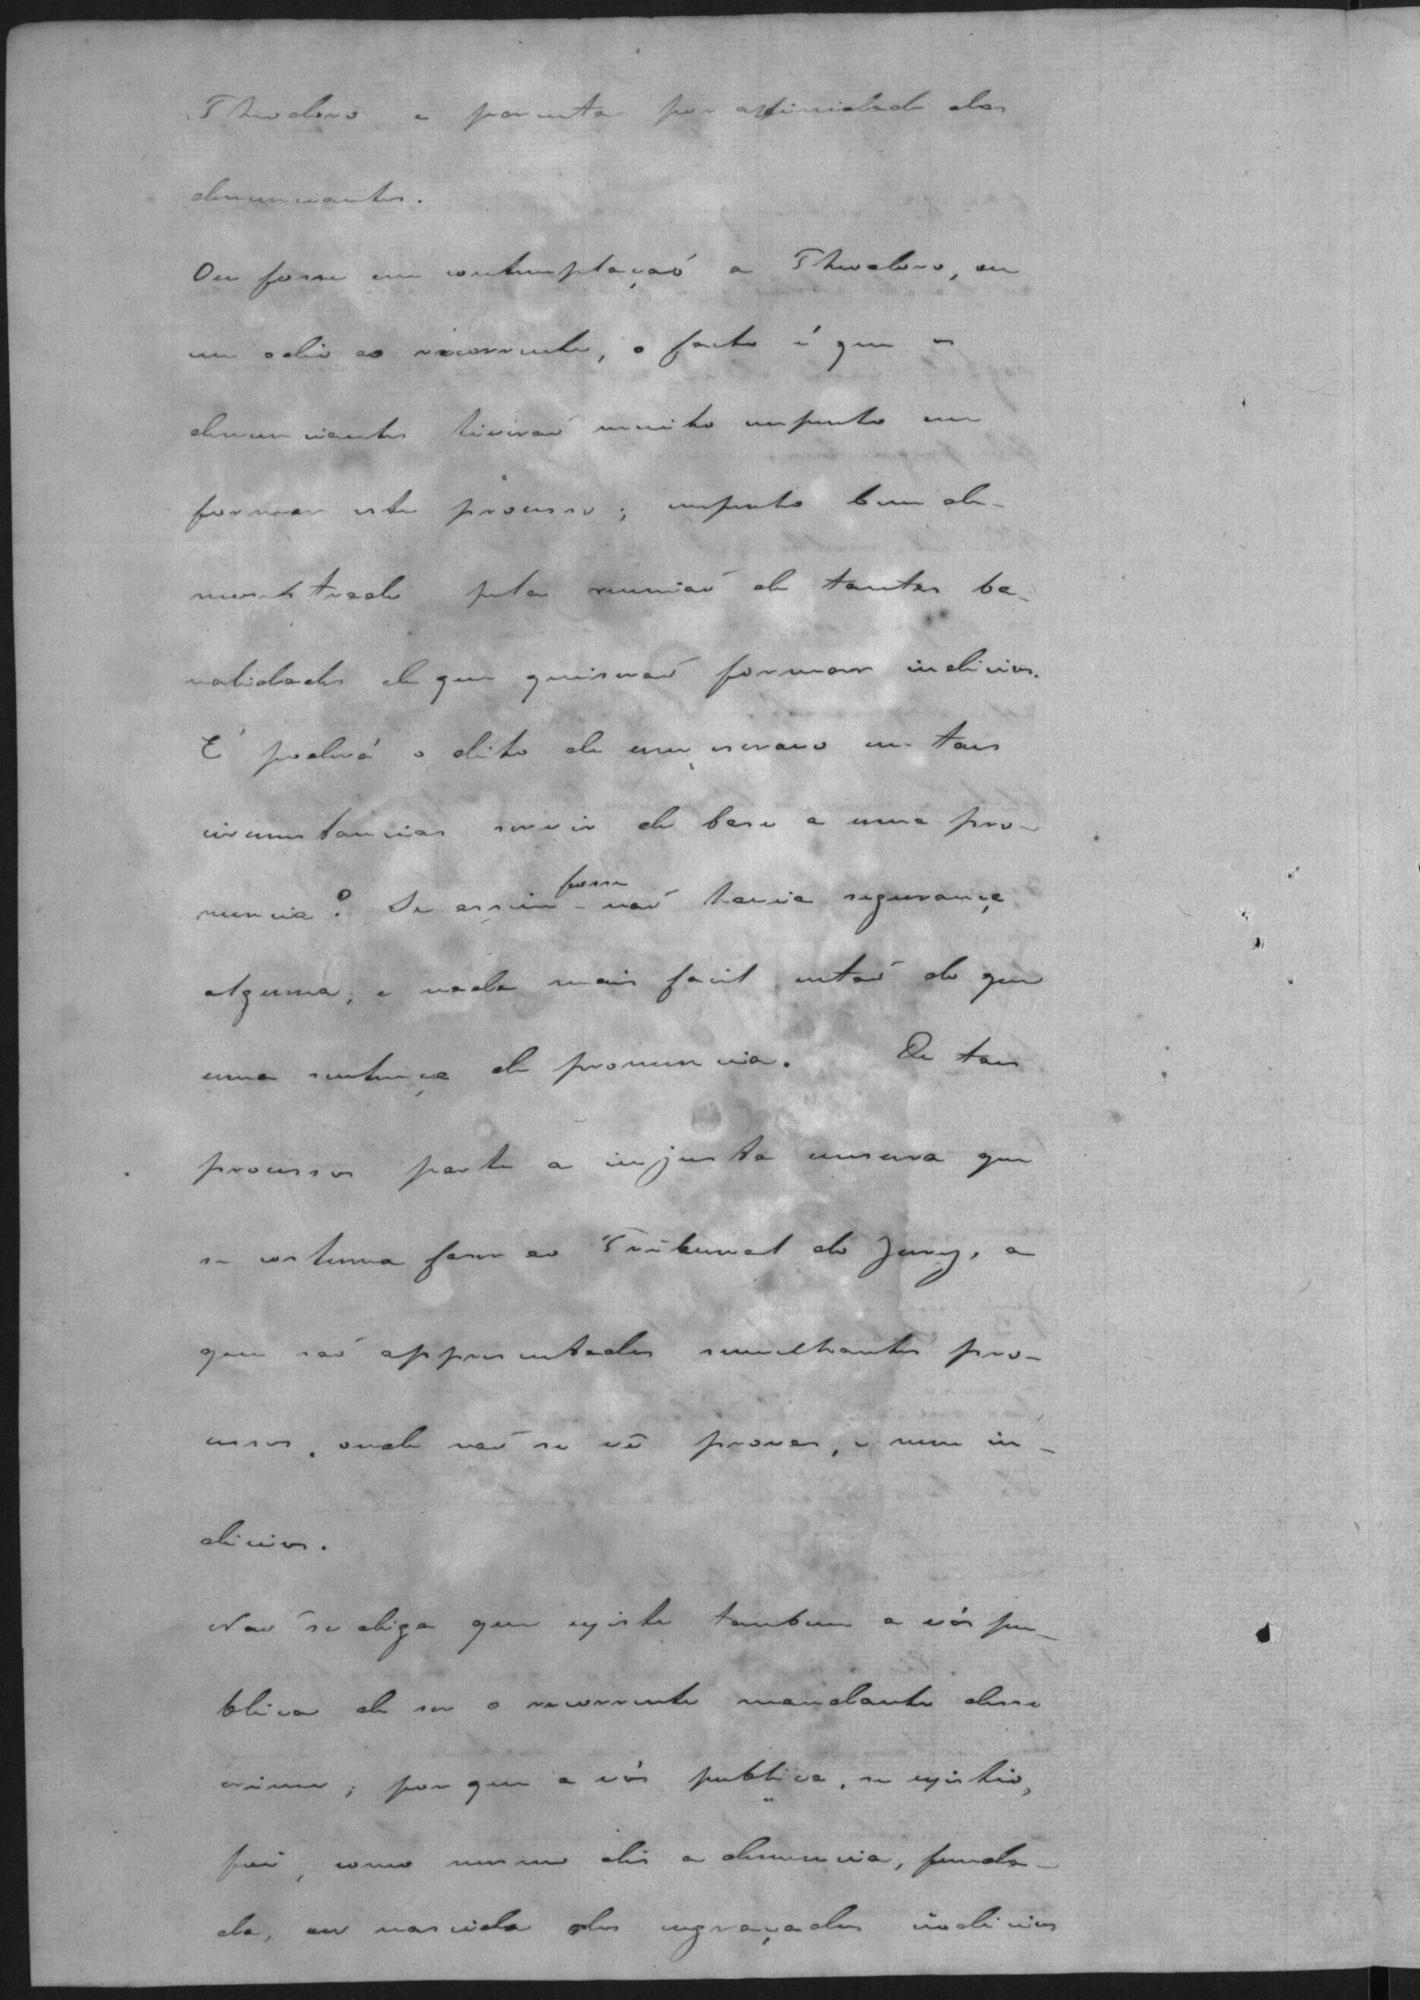 Theodoro e parenta por affinidade dos
denunciantes.
Ou fosse em contemplaçaõ a Theodoro, ou
em odio ao recorrente, o facto é que os
denunciantes tiveraõ muito empenho em
formar este processo; empenho bem de-
monstrado pela reuniaõ de tantas ba-
nalidades de que quiseraõ formar indicios.
E poderá o dito de um escravo em taes
circumstancias servir de base a uma pro-
nuncia? Se assim fosse naõ havia segurança
alguma, e nada mais facil entaõ do que
uma sentença de pronuncia. De taes
processos parte a injusta censura que
se costuma faser ao Tribunal do Jury, a
quem saõ appresentados semelhantes pro-
cessos, onde naõ se vê provas, e nem in-
dicios.
Naõ se diga que existe tambem a vós pu-
blica de ser o recorrente mandante desse
crime; por que a vós publica, se existio,
foi, como mesmo dis a denuncia, funda-
da, ou nascida dos engraçados indicios